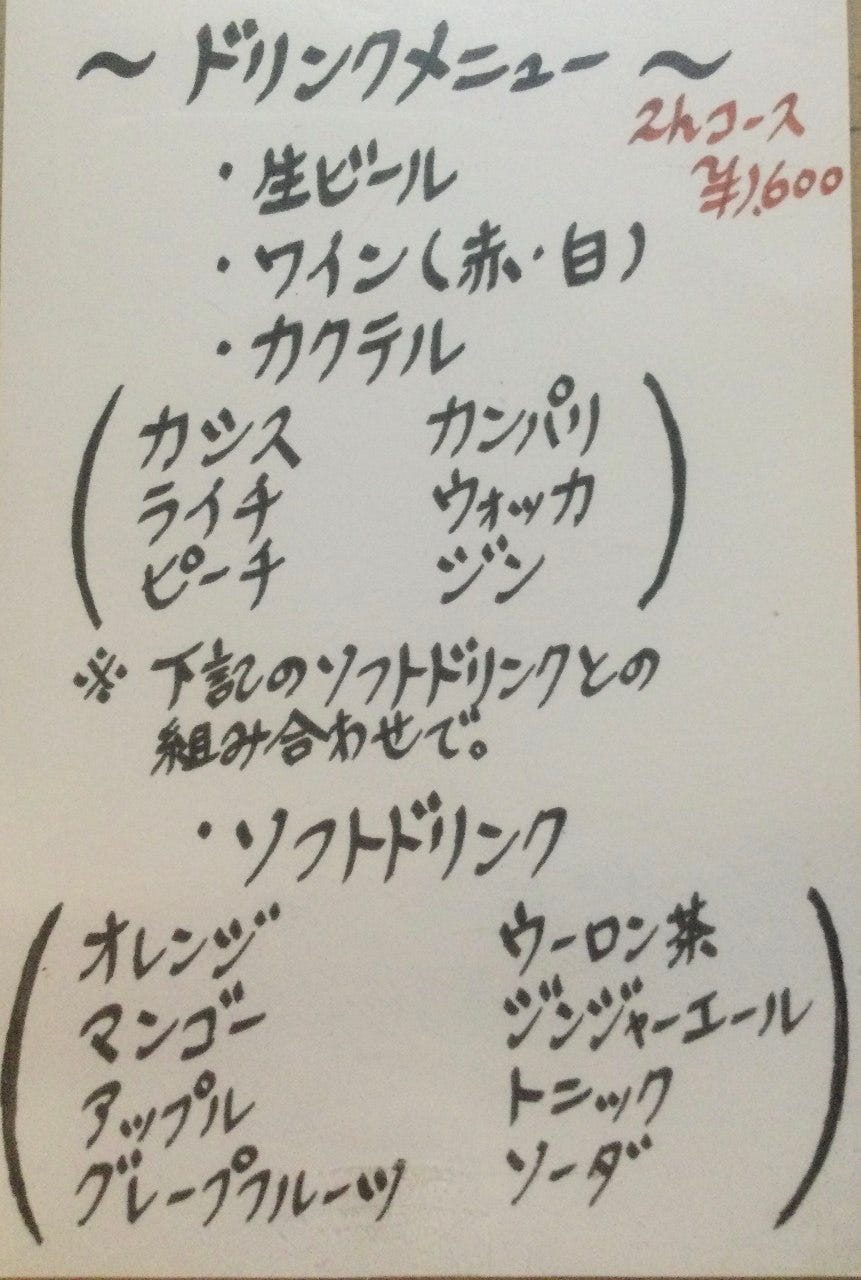 ～ドリンクメニュー～
2hコース
¥1,600
・生ビール
・ワイン(赤・白)
・カクテル
カシス カンパリ
ライチ ウォッカ
ピーチ ジン
※下記のソフトドリンクとの
組み合わせで。
・ソフトドリンク
オレンジ ウーロン茶
マンゴー ジンジャーエール
アップル トニック
グレープフルーツ ソーダ